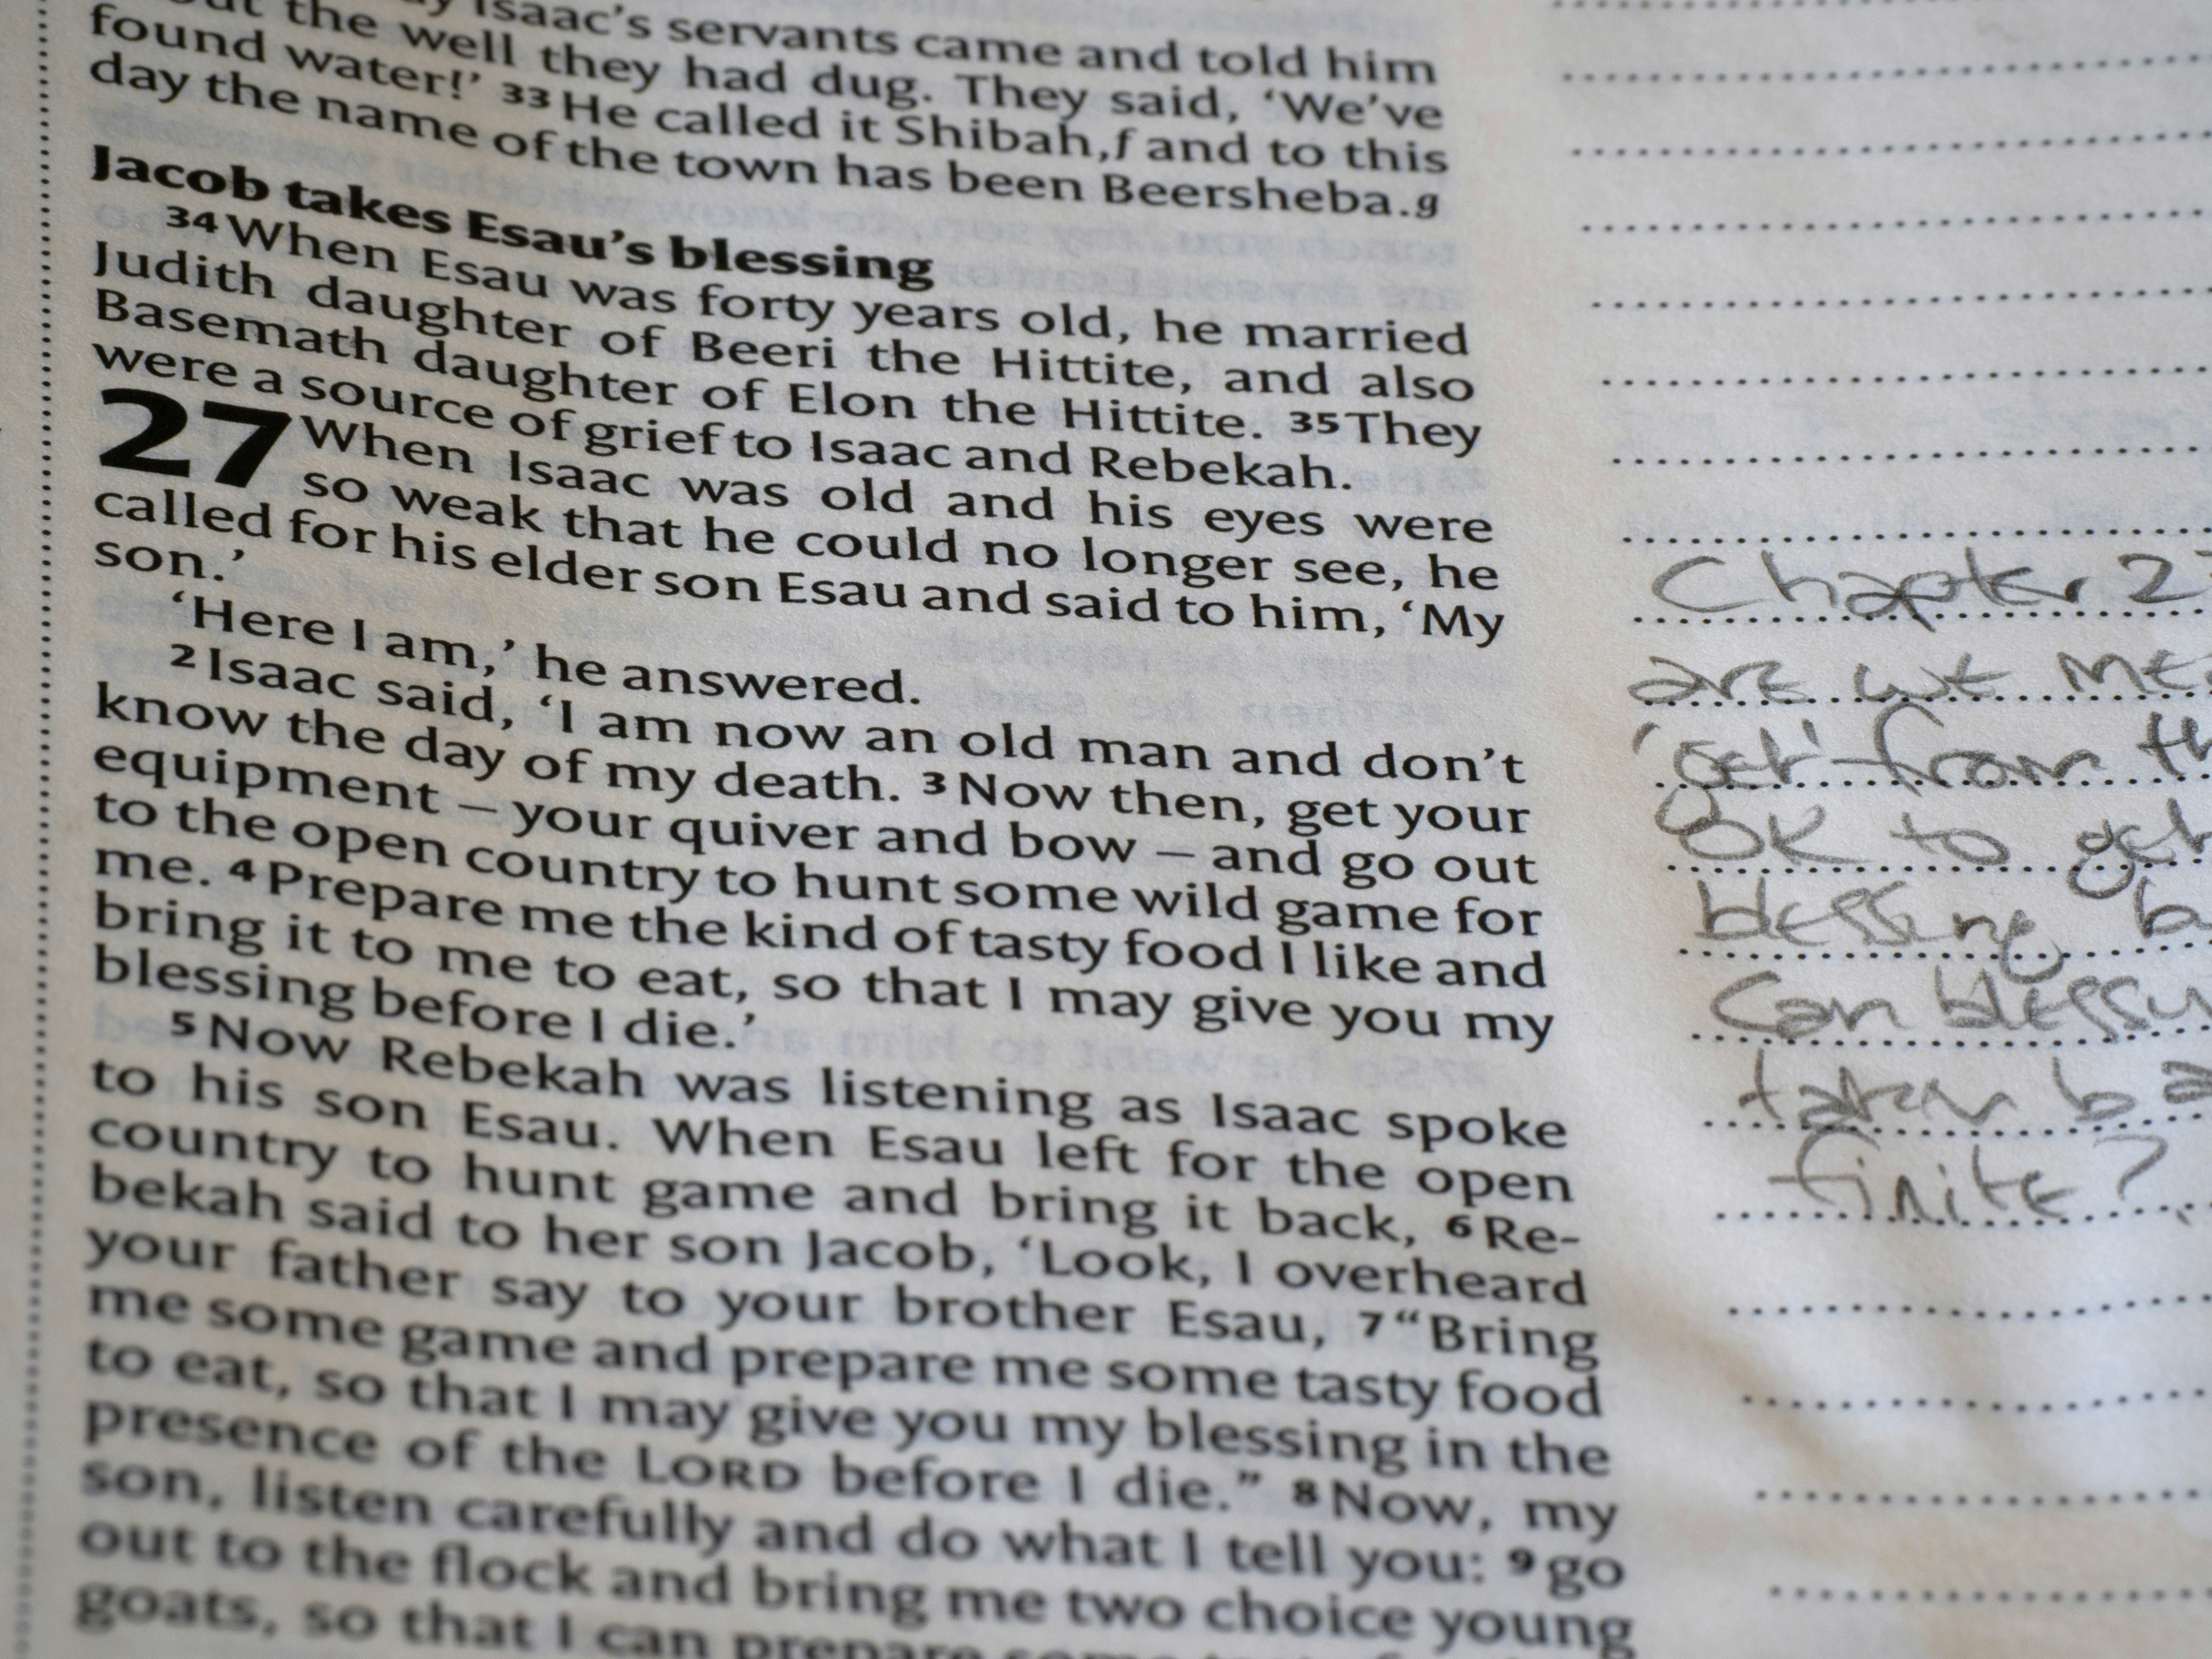 Isaac's servants came and told him
the well they had dug. They said, ‘We’ve
found water!’ 33 He called it Shibah,f and to this
day the name of the town has been Beersheba.g
Jacob takes Esau’s blessing
34 When Esau was forty years old, he married
Judith daughter of Beeri the Hittite, and also
Basemath daughter of Elon the Hittite. 35 They
were a source of grief to Isaac and Rebekah.
27 When Isaac was old and his eyes were
so weak that he could no longer see, he
called for his elder son Esau and said to him, ‘My
son.’
‘Here I am,’ he answered.
2 Isaac said, ‘I am now an old man and don’t
know the day of my death. 3 Now then, get your
equipment – your quiver and bow – and go out
to the open country to hunt some wild game for
me. 4 Prepare me the kind of tasty food I like and
bring it to me to eat, so that I may give you my
blessing before I die.’
5 Now Rebekah was listening as Isaac spoke
to his son Esau. When Esau left for the open
country to hunt game and bring it back, 6 Re-
bekah said to her son Jacob, ‘Look, I overheard
your father say to your brother Esau, 7 “Bring
me some game and prepare me some tasty food
to eat, so that I may give you my blessing in the
presence of the LORD before I die.” 8 Now, my
son, listen carefully and do what I tell you: 9 go
out to the flock and bring me two choice young
goats, so that I can prepare some
Chapter 2
are we
'get' from
OK to get
blessing
Can
taken
finite?